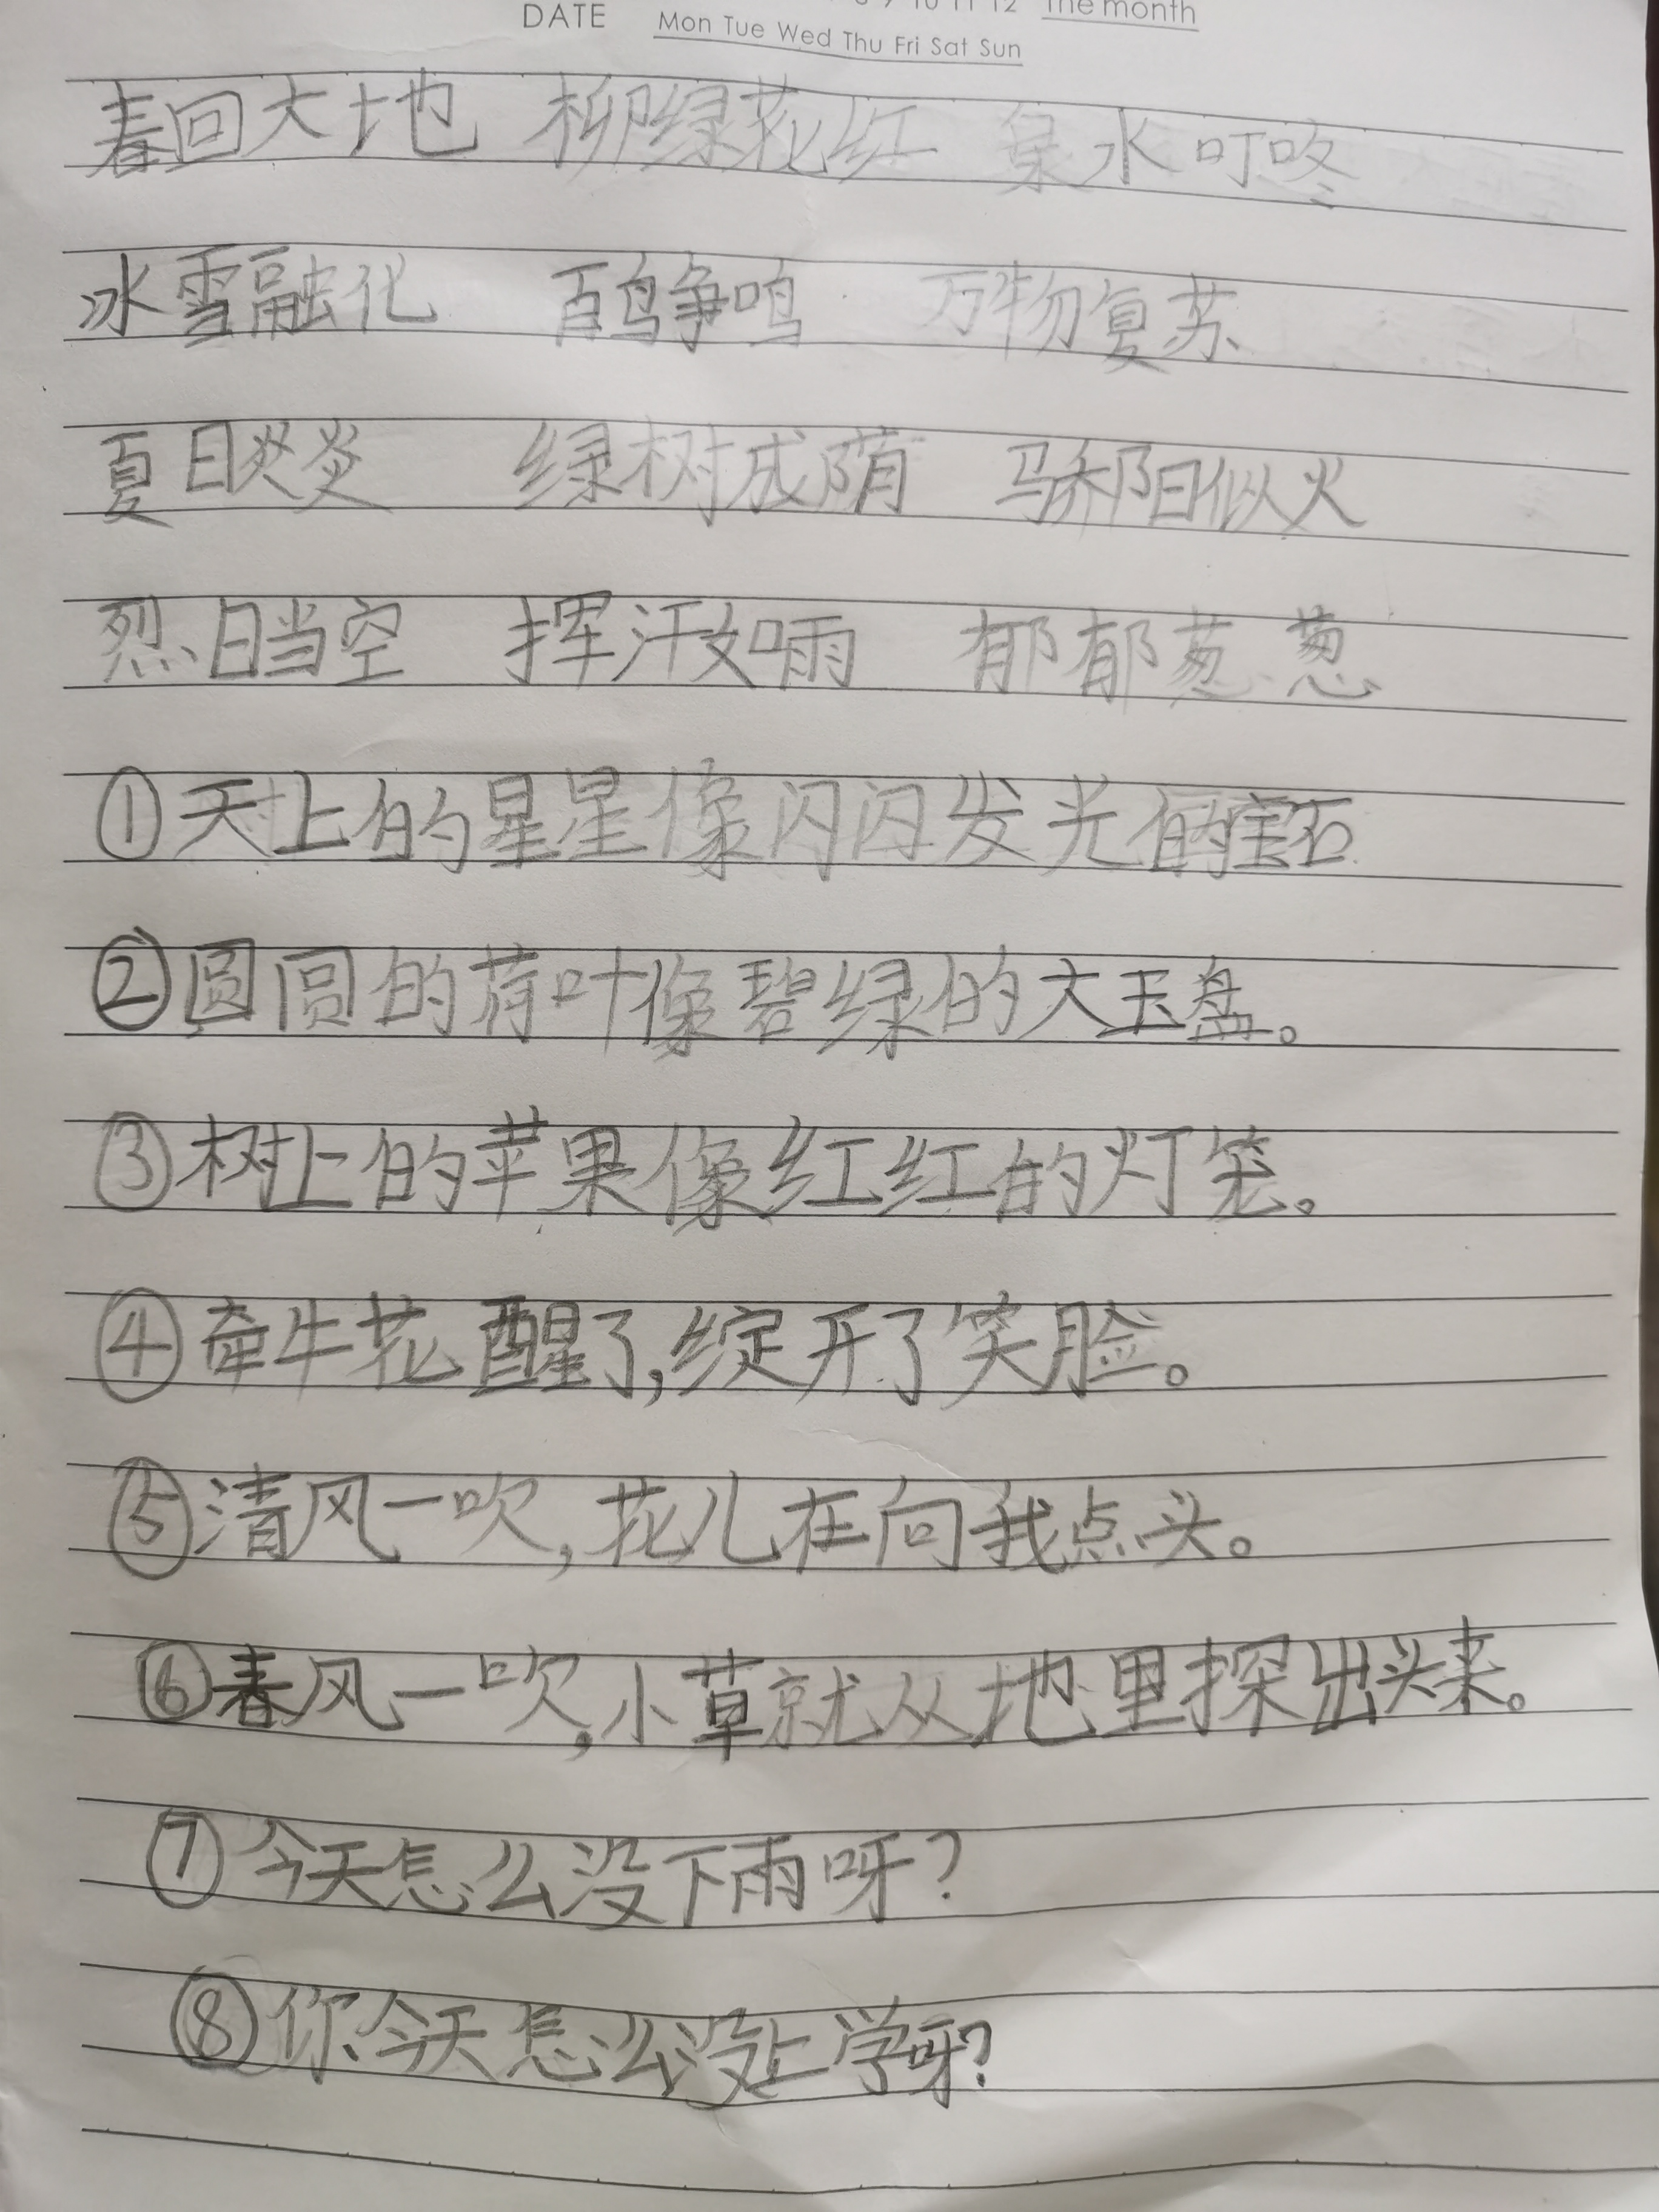 8 9 10 11 12 The month
DATE Mon Tue Wed Thu Fri Sat Sun
春回大地 柳绿花红 泉水叮咚
冰雪融化 百鸟争鸣 万物复苏
夏日炎炎 绿树成荫 骄阳似火
烈日当空 挥汗如雨 郁郁葱葱
①天上的星星像闪闪发光的宝石
②圆圆的荷叶像碧绿的大玉盘。
③树上的苹果像红红的灯笼。
④牵牛花醒了,绽开了笑脸。
⑤清风一吹,花儿在向我点头。
⑥春风一吹,小草就从地里探出头来。
⑦今天怎么没下雨呀?
⑧你今天怎么没上学呀?